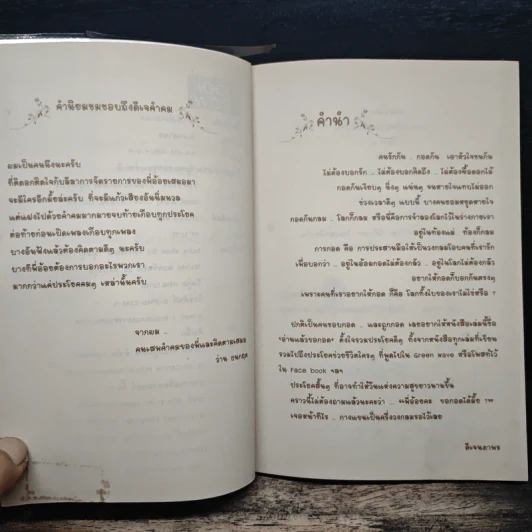 คำนิยมชมชอบถึงดีเจคำคม
ผมเป็นคนนึงนะครับ
ที่ติดอกติดใจกับลีลาการจัดรายการของพี่อ้อยเสมอมา
จะมีใครอีกมั้ยล่ะครับ ที่จะมีแก้วเสียงอันนิ่มนวล
แต่แฝงไปด้วยคำคมมากมายจบท้ายเกือบทุกประโยค
ต่อท้ายก่อนเปิดเพลงเกือบทุกเพลง
บางอันฟังแล้วต้องคิดตามดีๆ นะครับ
บางทีพี่อ้อยต้องการบอกอะไรพวกเรา
มากกว่าแค่ประโยคคมๆ เหล่านั้นครับ
จากผม ..
คนเสพคำคมของพี่และคิดตามเสมอ
ว่าน ธนกฤต
คำนำ
คนรักกัน .. กอดกัน เอาหัวใจชนกัน
ไม่ต้องบอกรัก .. ไม่ต้องบอกคิดถึง .. ไม่ต้องซื้อดอกไม้
กอดกันเงียบๆ นิ่งๆ แน่นๆ จนหายใจแทบไม่ออก
ช่วงเวลาดีๆ แบบนี้ บางคนยอมหยุดหายใจ
กอดกันกลม .. โลกก็กลม หรือนี่คือการจำลองโลกไว้ในร่างกายเรา
อยู่ในท้องแม่ ท้องก็กลม
การกอด คือ การประสานมือให้เป็นวงกลมโอบคนที่เรารัก
เพื่อบอกว่า .. อยู่ในอ้อมกอดไม่ต้องกลัว .. อยู่ในโลกไม่ต้องกลัว
อยากให้กอดก็บอกกันตรงๆ
เพราะคนที่เราอยากให้กอด ก็คือ โลกทั้งใบของเราไม่ใช่หรือ ?
ปกติเป็นคนชอบกอด .. และถูกกอด เลยอยากให้หนังสือเล่มนี้ชื่อ
"อ่านแล้วขอกอด" ตั้งใจรวมประโยคดีๆ ทั้งจากหนังสือทุกเล่มที่เขียน
รวมไปถึงประโยคช่วยชีวิตใครๆ ที่พูดไปใน Green wave หรือโพสท์ไว้
ใน Face book ฯลฯ
ประโยคสั้นๆ ที่อาจทำให้วันแห่งความสุขยาวนานขึ้น
คราวนี้ไม่ต้องถามแล้วนะคะว่า .. "พี่อ้อยคะ ขอกอดได้มั้ย ?"
เจอหน้าทีไร .. กางแขนเป็นครึ่งวงกลมรอไว้เลย
ดีเจนภาพร